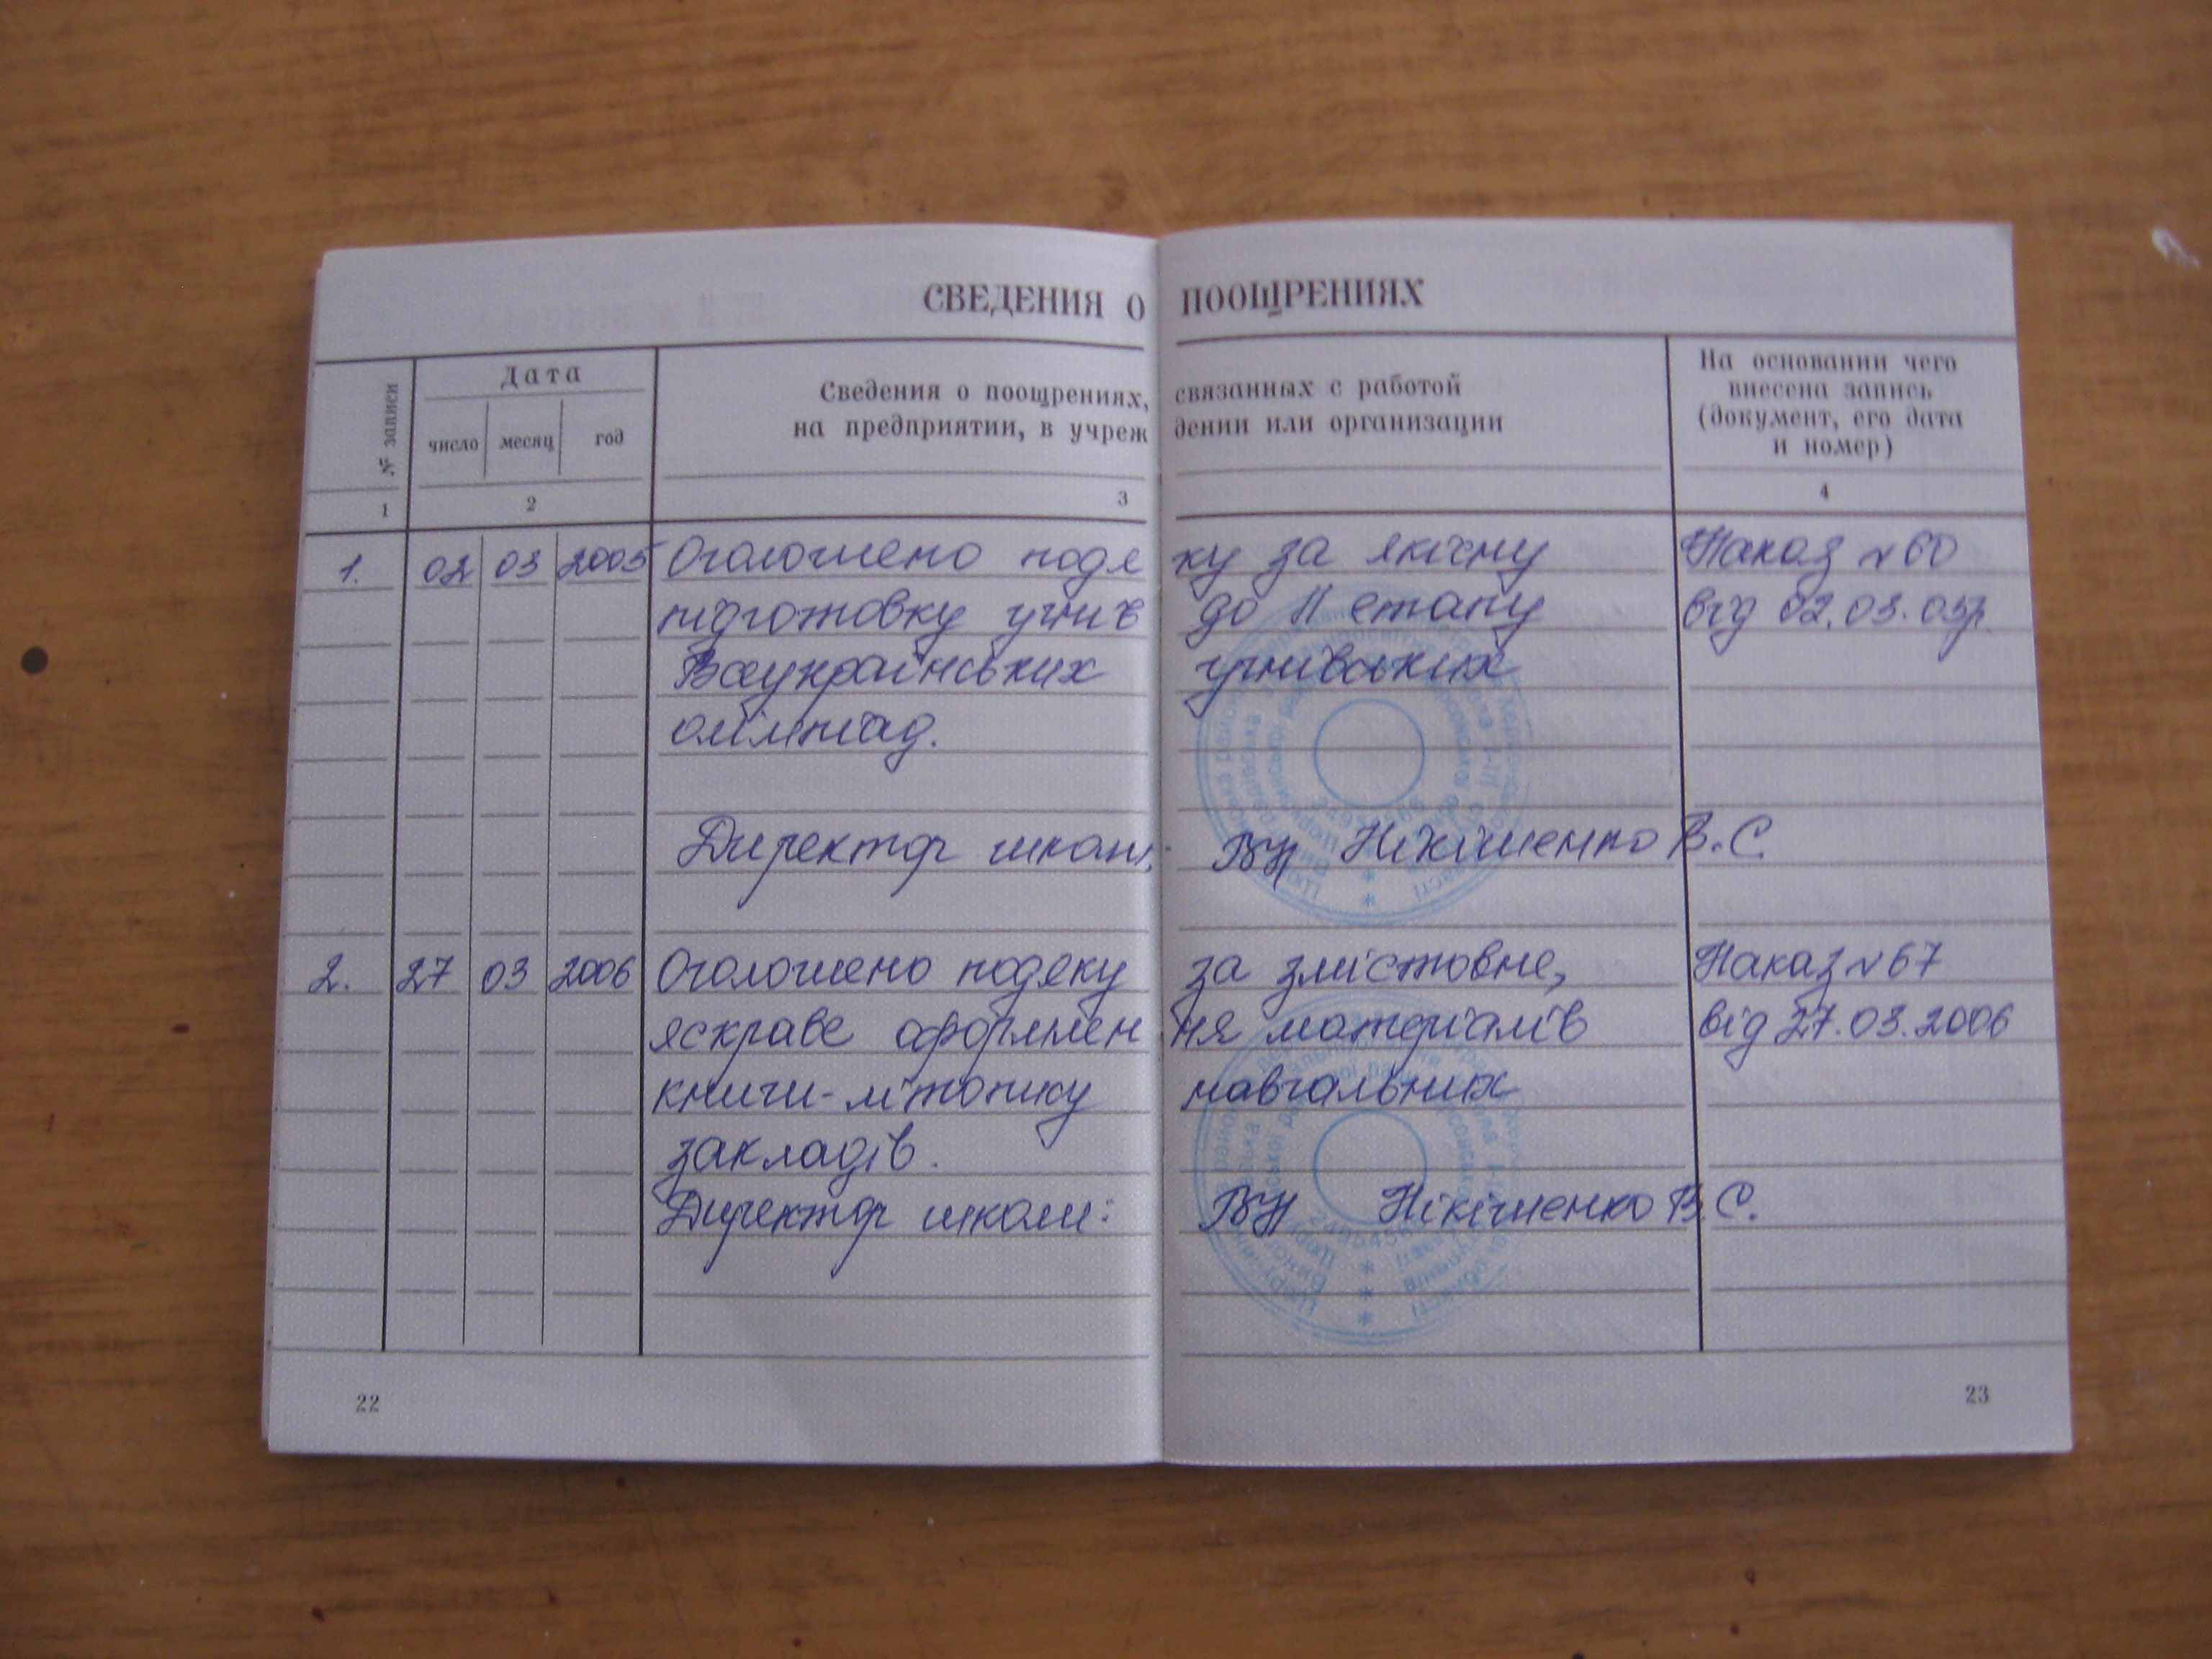 СВЕДЕНИЯ О ПООЩРЕНИЯХ
№ записи
Дата
число месяц год
Сведения о поощрениях, связанных с работой
на предприятии, в учреж дении или организации
На основании чего
внесена запись
(документ, его дата
и номер)
1 2 3 4
1. 02 03 2005 Оголошено подя ку за якісну Наказ №60
підготовку учнів до ІІ етапу від 02.03.05р.
Всеукраїнських учнівських
олімпіад.
Директор школи: Нікішенко В.С.
2. 27 03 2006 Оголошено подяку за змістовне, Наказ №67
яскраве оформлен ня матеріалів від 27.03.2006
книги-літопису навчальних
закладів.
Директор школи: Нікішенко В.С.
22 23